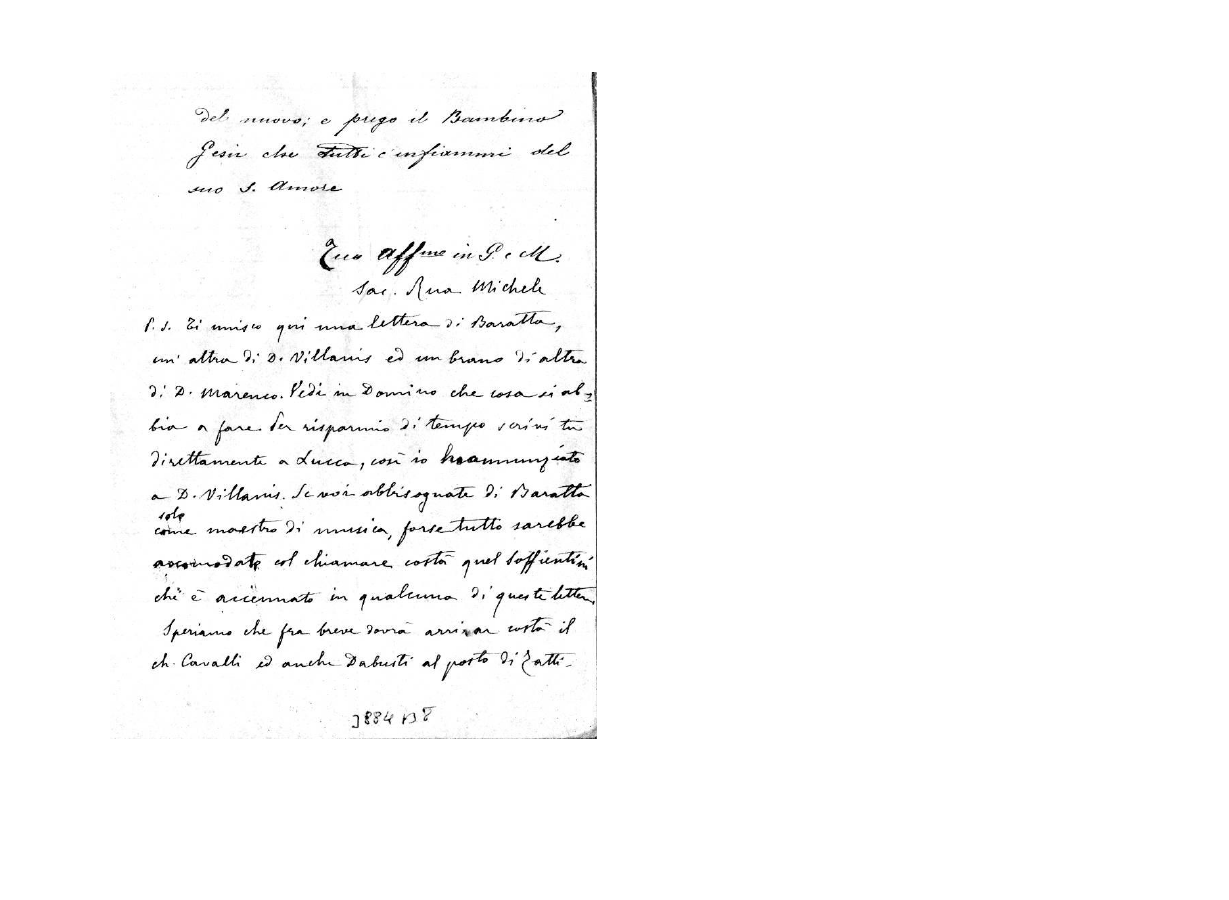 del nuovo; e prego il Bambino
Gesù che tutti c'infiammi del
suo S. Amore
Tuo Aff.mo in G. e M.
Sac. Rua Michele
P. S. Ti unisco qui una lettera di Baratta,
un' altra di D. Villanis ed un brano di altra
di D. Marenco. Vedi in Domino che cosa si ab-
bia a fare. Per risparmio di tempo scrivi tu
direttamente a Lucca, così io ho annunziato
a D. Villanis. Se voi abbisognate di Baratta
solo
come maestro di musica, forse tutto sarebbe
accomodato col chiamare costà quel Soffientini
ch' è accennato in qualcuna di queste lettere
Speriamo che fra breve dovrà arrivar costà il
ch. Cavalli ed anche Dabusti al posto di Zatti.
3884 B8